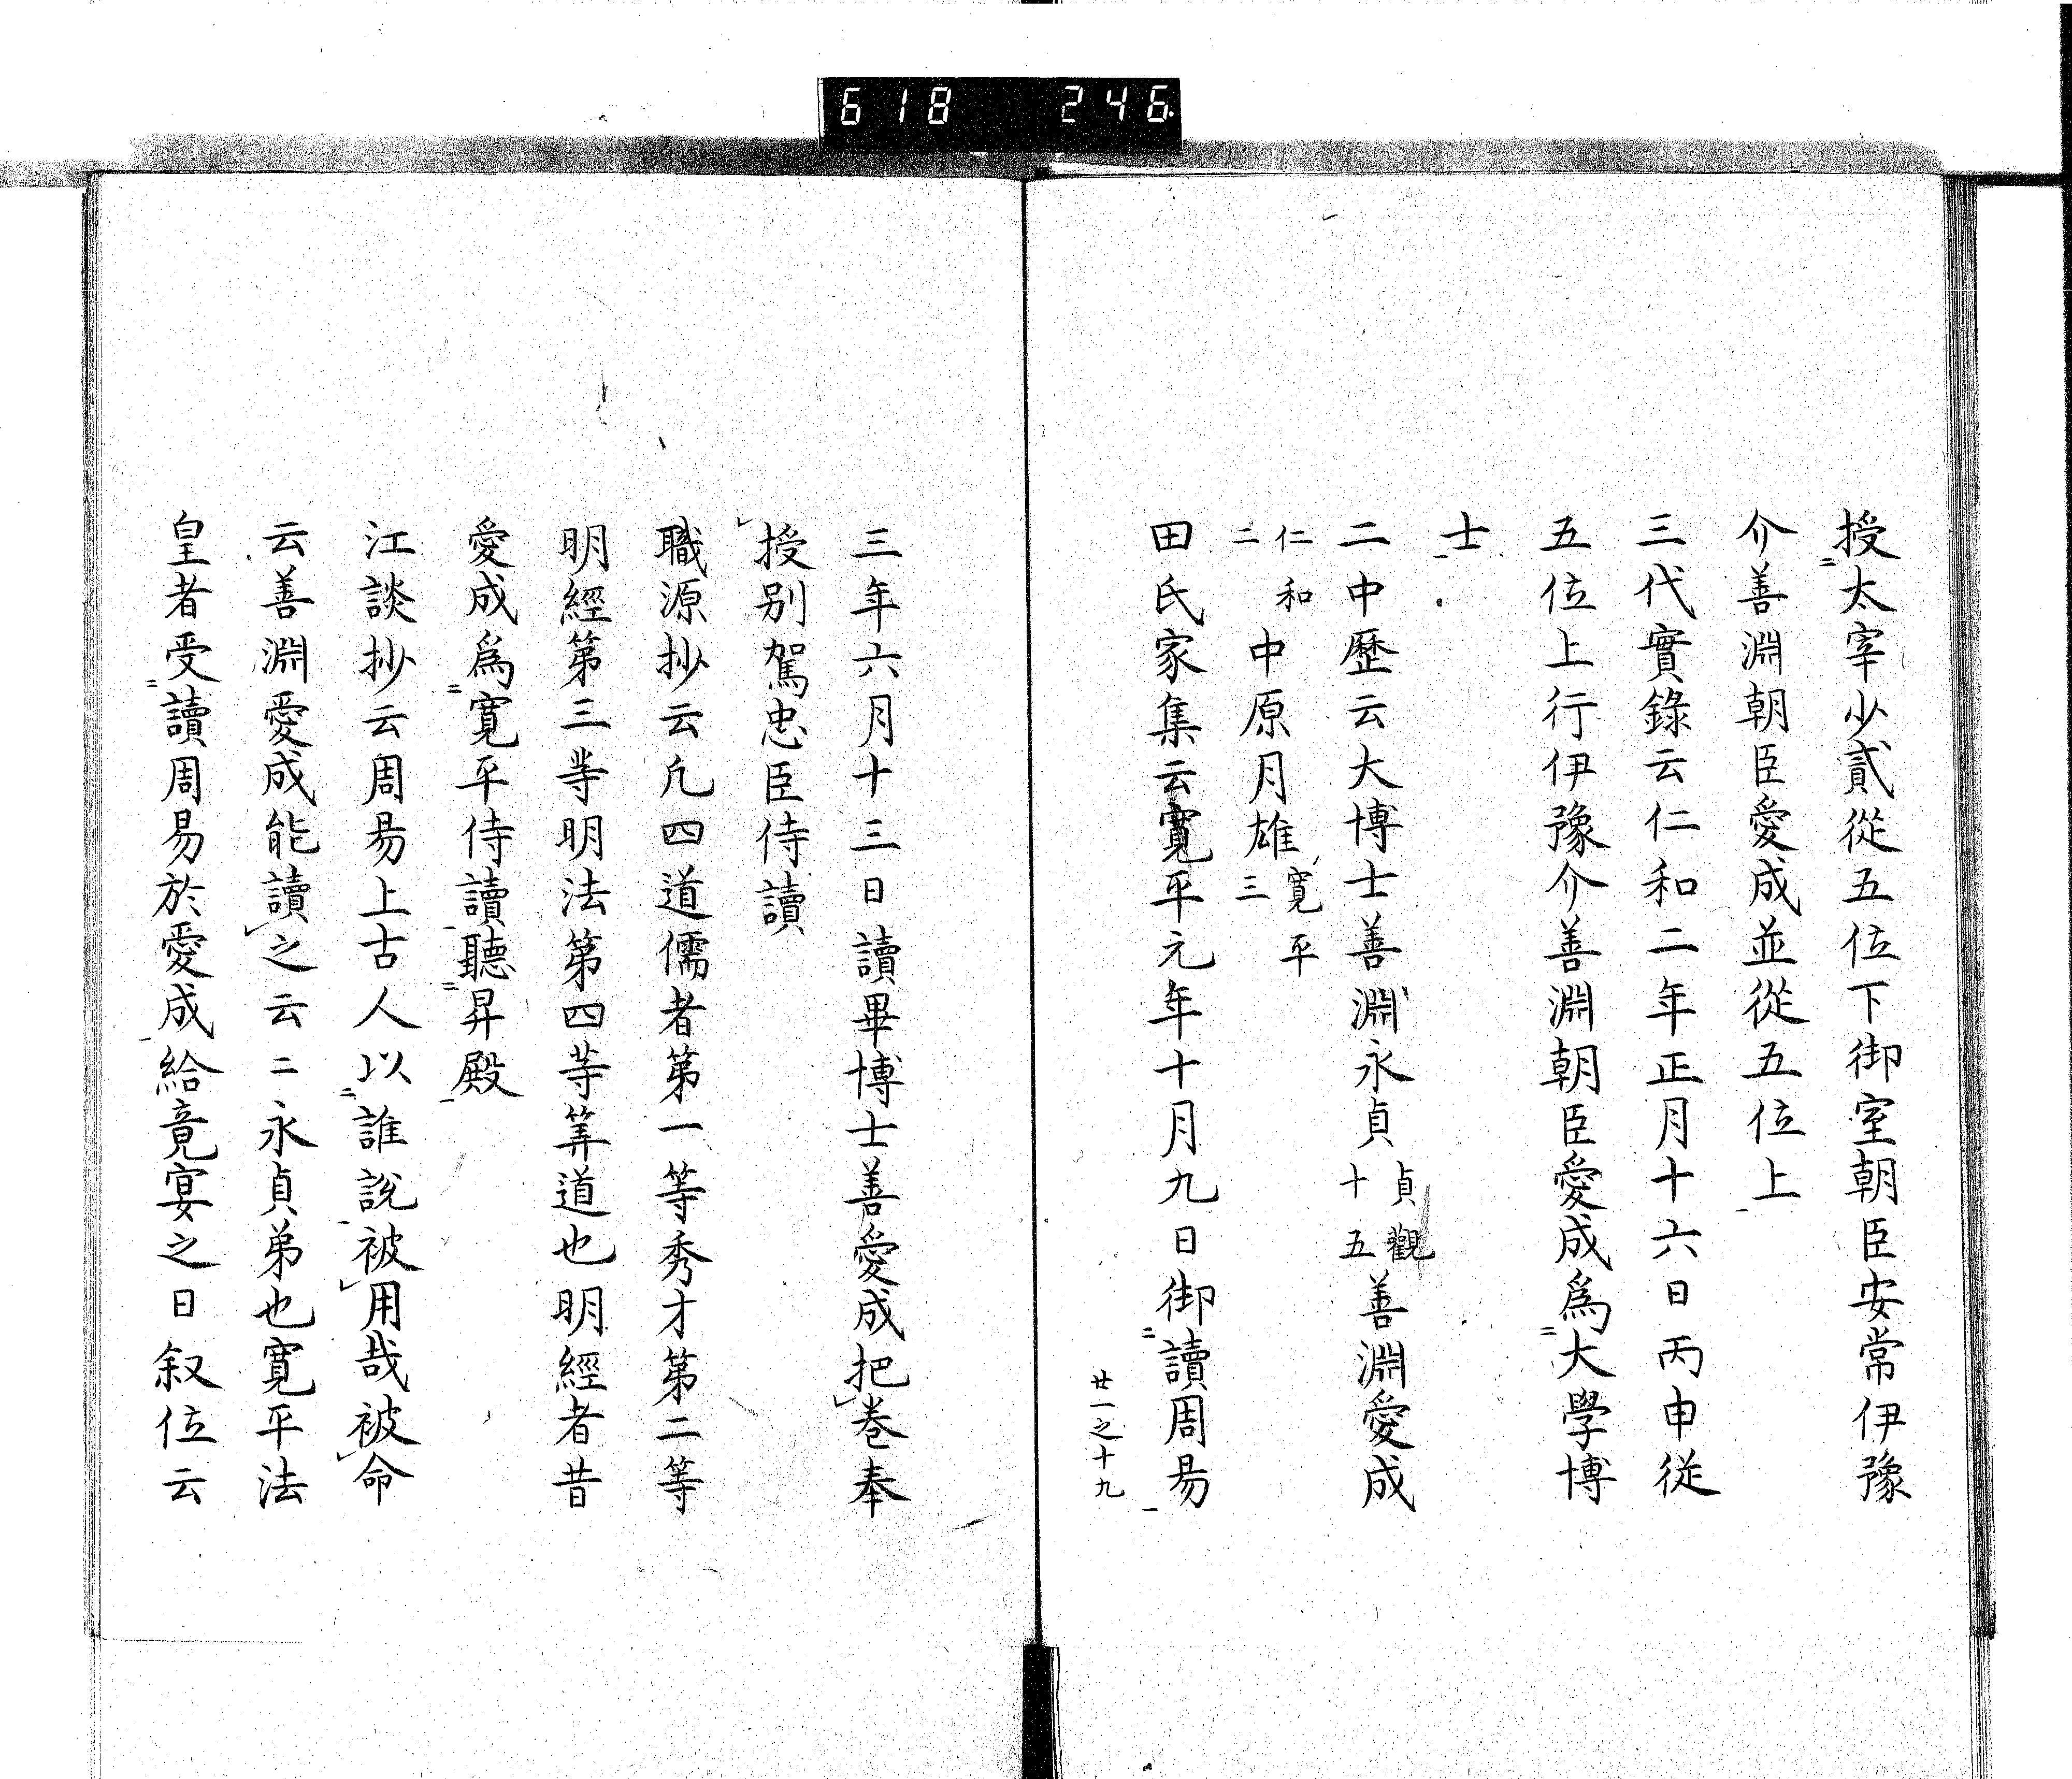 618 246
授太宰少貳從五位下御室朝臣安常伊豫
介善淵朝臣愛成並從五位上
三代實錄云仁和二年正月十六日丙申從
五位上行伊豫介善淵朝臣愛成爲大學博
士
二中歷云大博士善淵永貞貞觀十五善淵愛成
仁和二中原月雄寬平三
田氏家集云寬平元年十月九日御讀周易
廿一之十九
三年六月十三日讀畢博士善愛成把卷奉
授別駕忠臣侍讀
職源抄云凢四道儒者第一等秀才第二等
明經第三等明法第四等筭道也明經者昔
愛成爲寬平侍讀聽昇殿
江談抄云周易上古人以誰說被用哉被命
云善淵愛成能讀之云〻永貞弟也寬平法
皇者受讀周易於愛成給竟宴之日叙位云